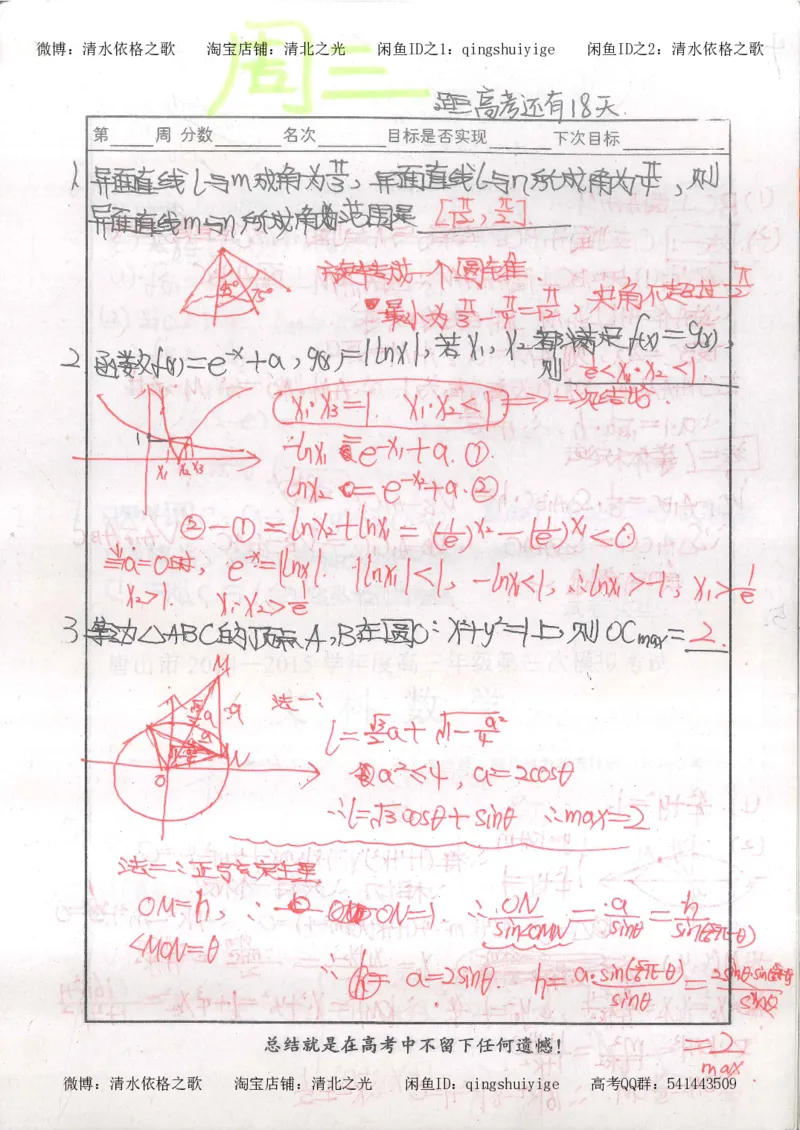 微博：清水依格之歌 淘宝店铺：清北之光 闲鱼ID之1：qingshuiyige 闲鱼ID之2：清水依格之歌
周三
距高考还有18天
第 周 分数 名次 目标是否实现 下次目标
1. 异面直线l与m成角为π/3，异面直线l与n所成角为π/4，则
异面直线m与n所成角的范围是 [π/12, π/2].
最小为π/3-π/4=π/12，夹角不超过π/2
2. 函数f(x)=e^-x+a, g(x)=|lnx|, 若x₁, x₂都满足f(x)=g(x),
则 e<x₁·x₂<1
x₁·x₃=1 x₁·x₂<1 ⇒
1
x₁ x₂ x₃
-lnx₁=e^-x₁+a.①
lnx₂=e^-x₂+a.②
②-①=lnx₂+lnx₁=(1/e)^x₂-(1/e)^x₁<0
当a=0时, e^-x=|lnx|. |lnx₁|<1, -lnx₁<1, ∴lnx₁>-1, x₁>1/e
x₂>1. x₁·x₂>1/e
3. 等边△ABC的顶点A,B在圆O：x²+y²=1上,则OCmax=2.
M
N
O
法一：
l=√3/2a+√1-a²/4
a²≤4, a=2cosθ
∴l=√3cosθ+sinθ ∴max=2
法二：正弦定理
OM=h, ∵ ON=1. ∴ON/sin∠OMN=a/sinθ=h/sin(5/6π-θ)
∠MON=θ
∴ a=2sinθ. h=a·sin(5/6π-θ)/sinθ=2sinθ·sin(5/6π-θ)/sinθ
=2
max
总结就是在高考中不留下任何遗憾！
微博：清水依格之歌 淘宝店铺：清北之光 闲鱼ID：qingshuiyige 高考QQ群：541443509